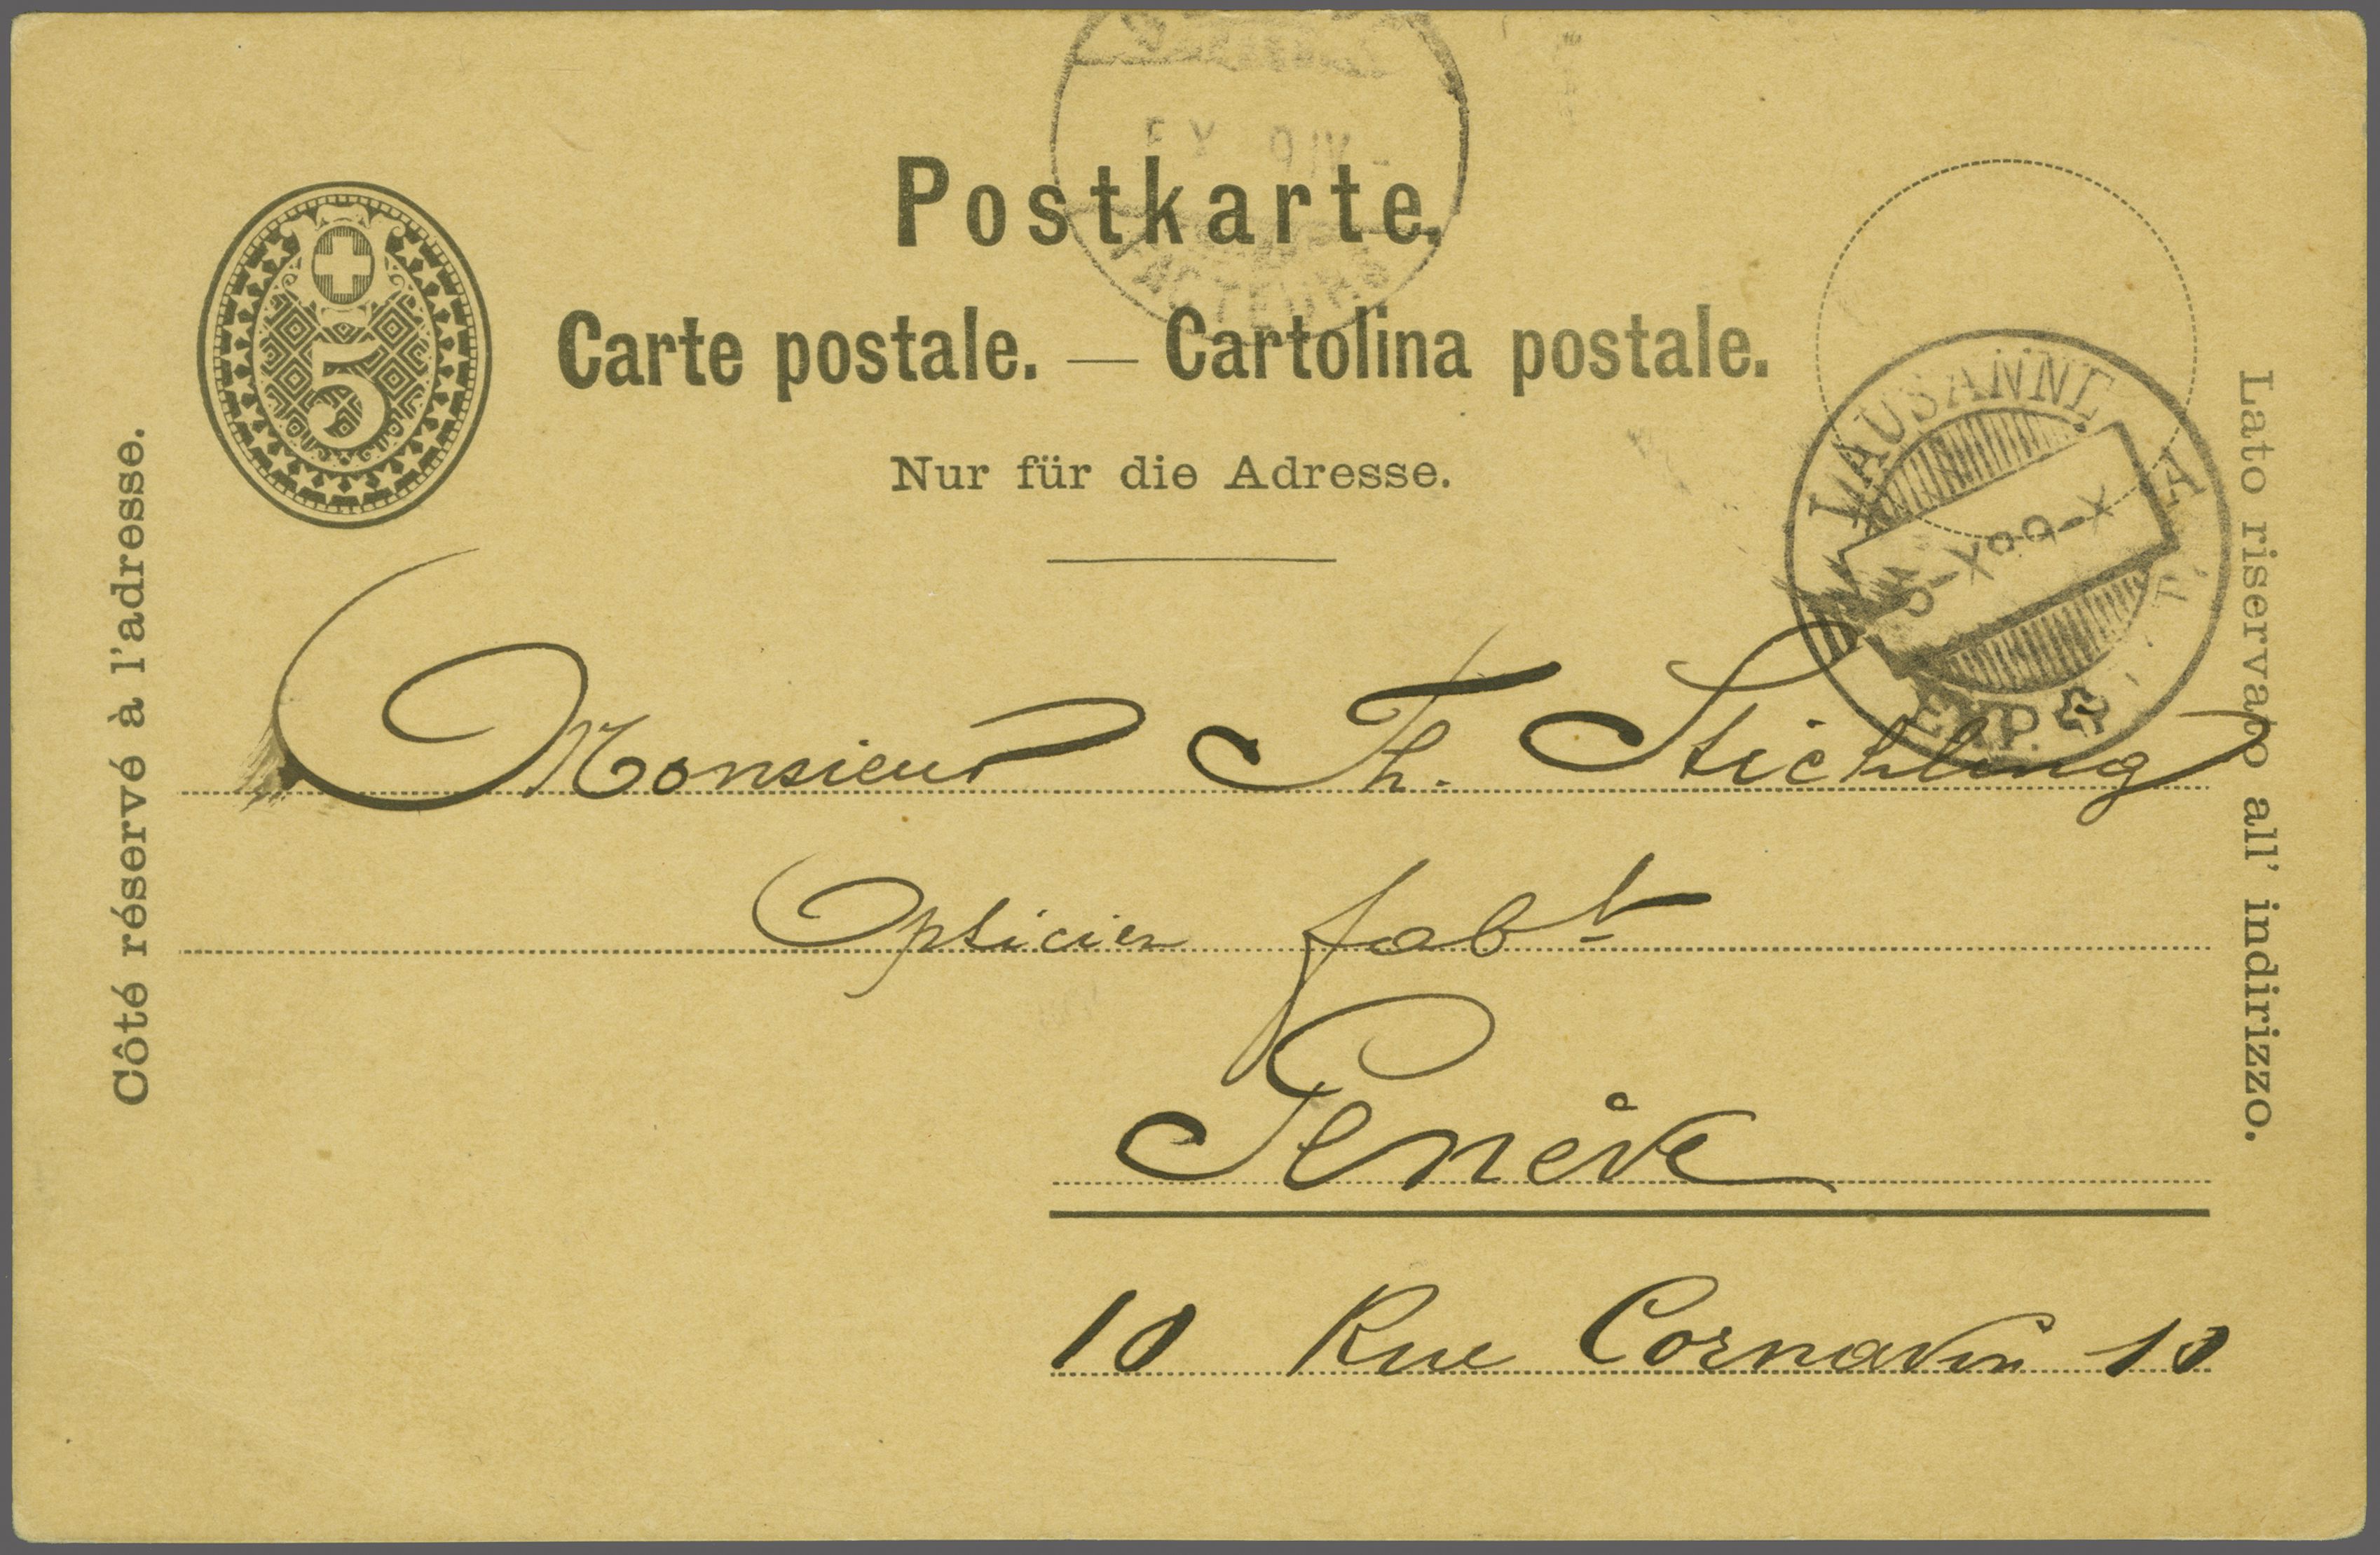 Postkarte.
5
Carte postale. — Cartolina postale.
Nur für die Adresse.
Côté réservé à l'adresse.
Lato riservato all' indirizzo.
FACTEURS
LAUSANNE
EXP.
Monsieur Th. Stichling
Opticien fabt
Genève
10 Rue Cornavin 10